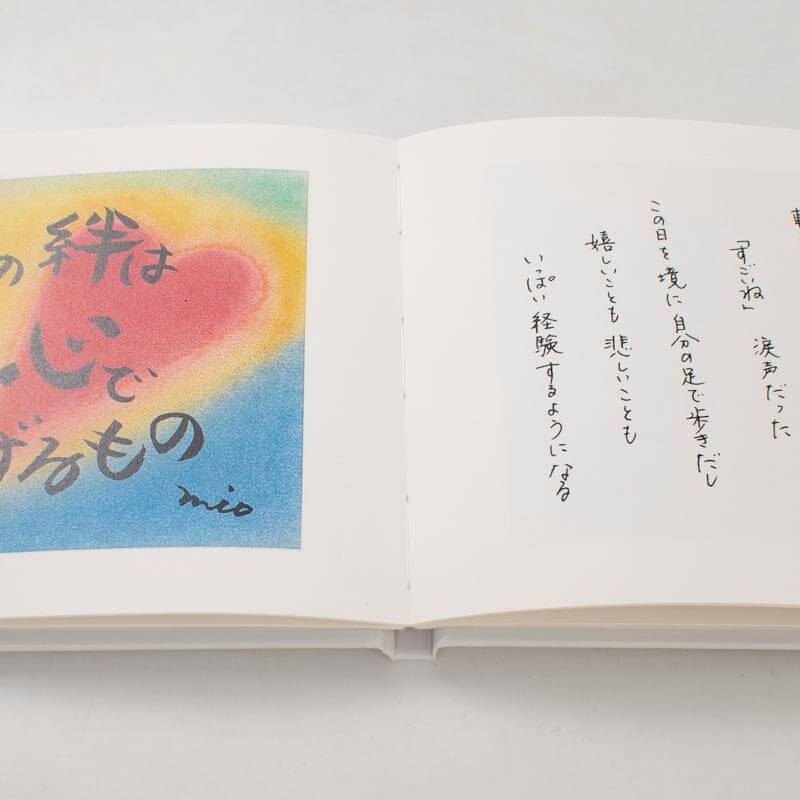 の絆は
心で
げるもの
mio
「すごいね」 涙声だった
この日を境に自分の足で歩きだし
嬉しいことも 悲しいことも
いっぱい経験するようになる